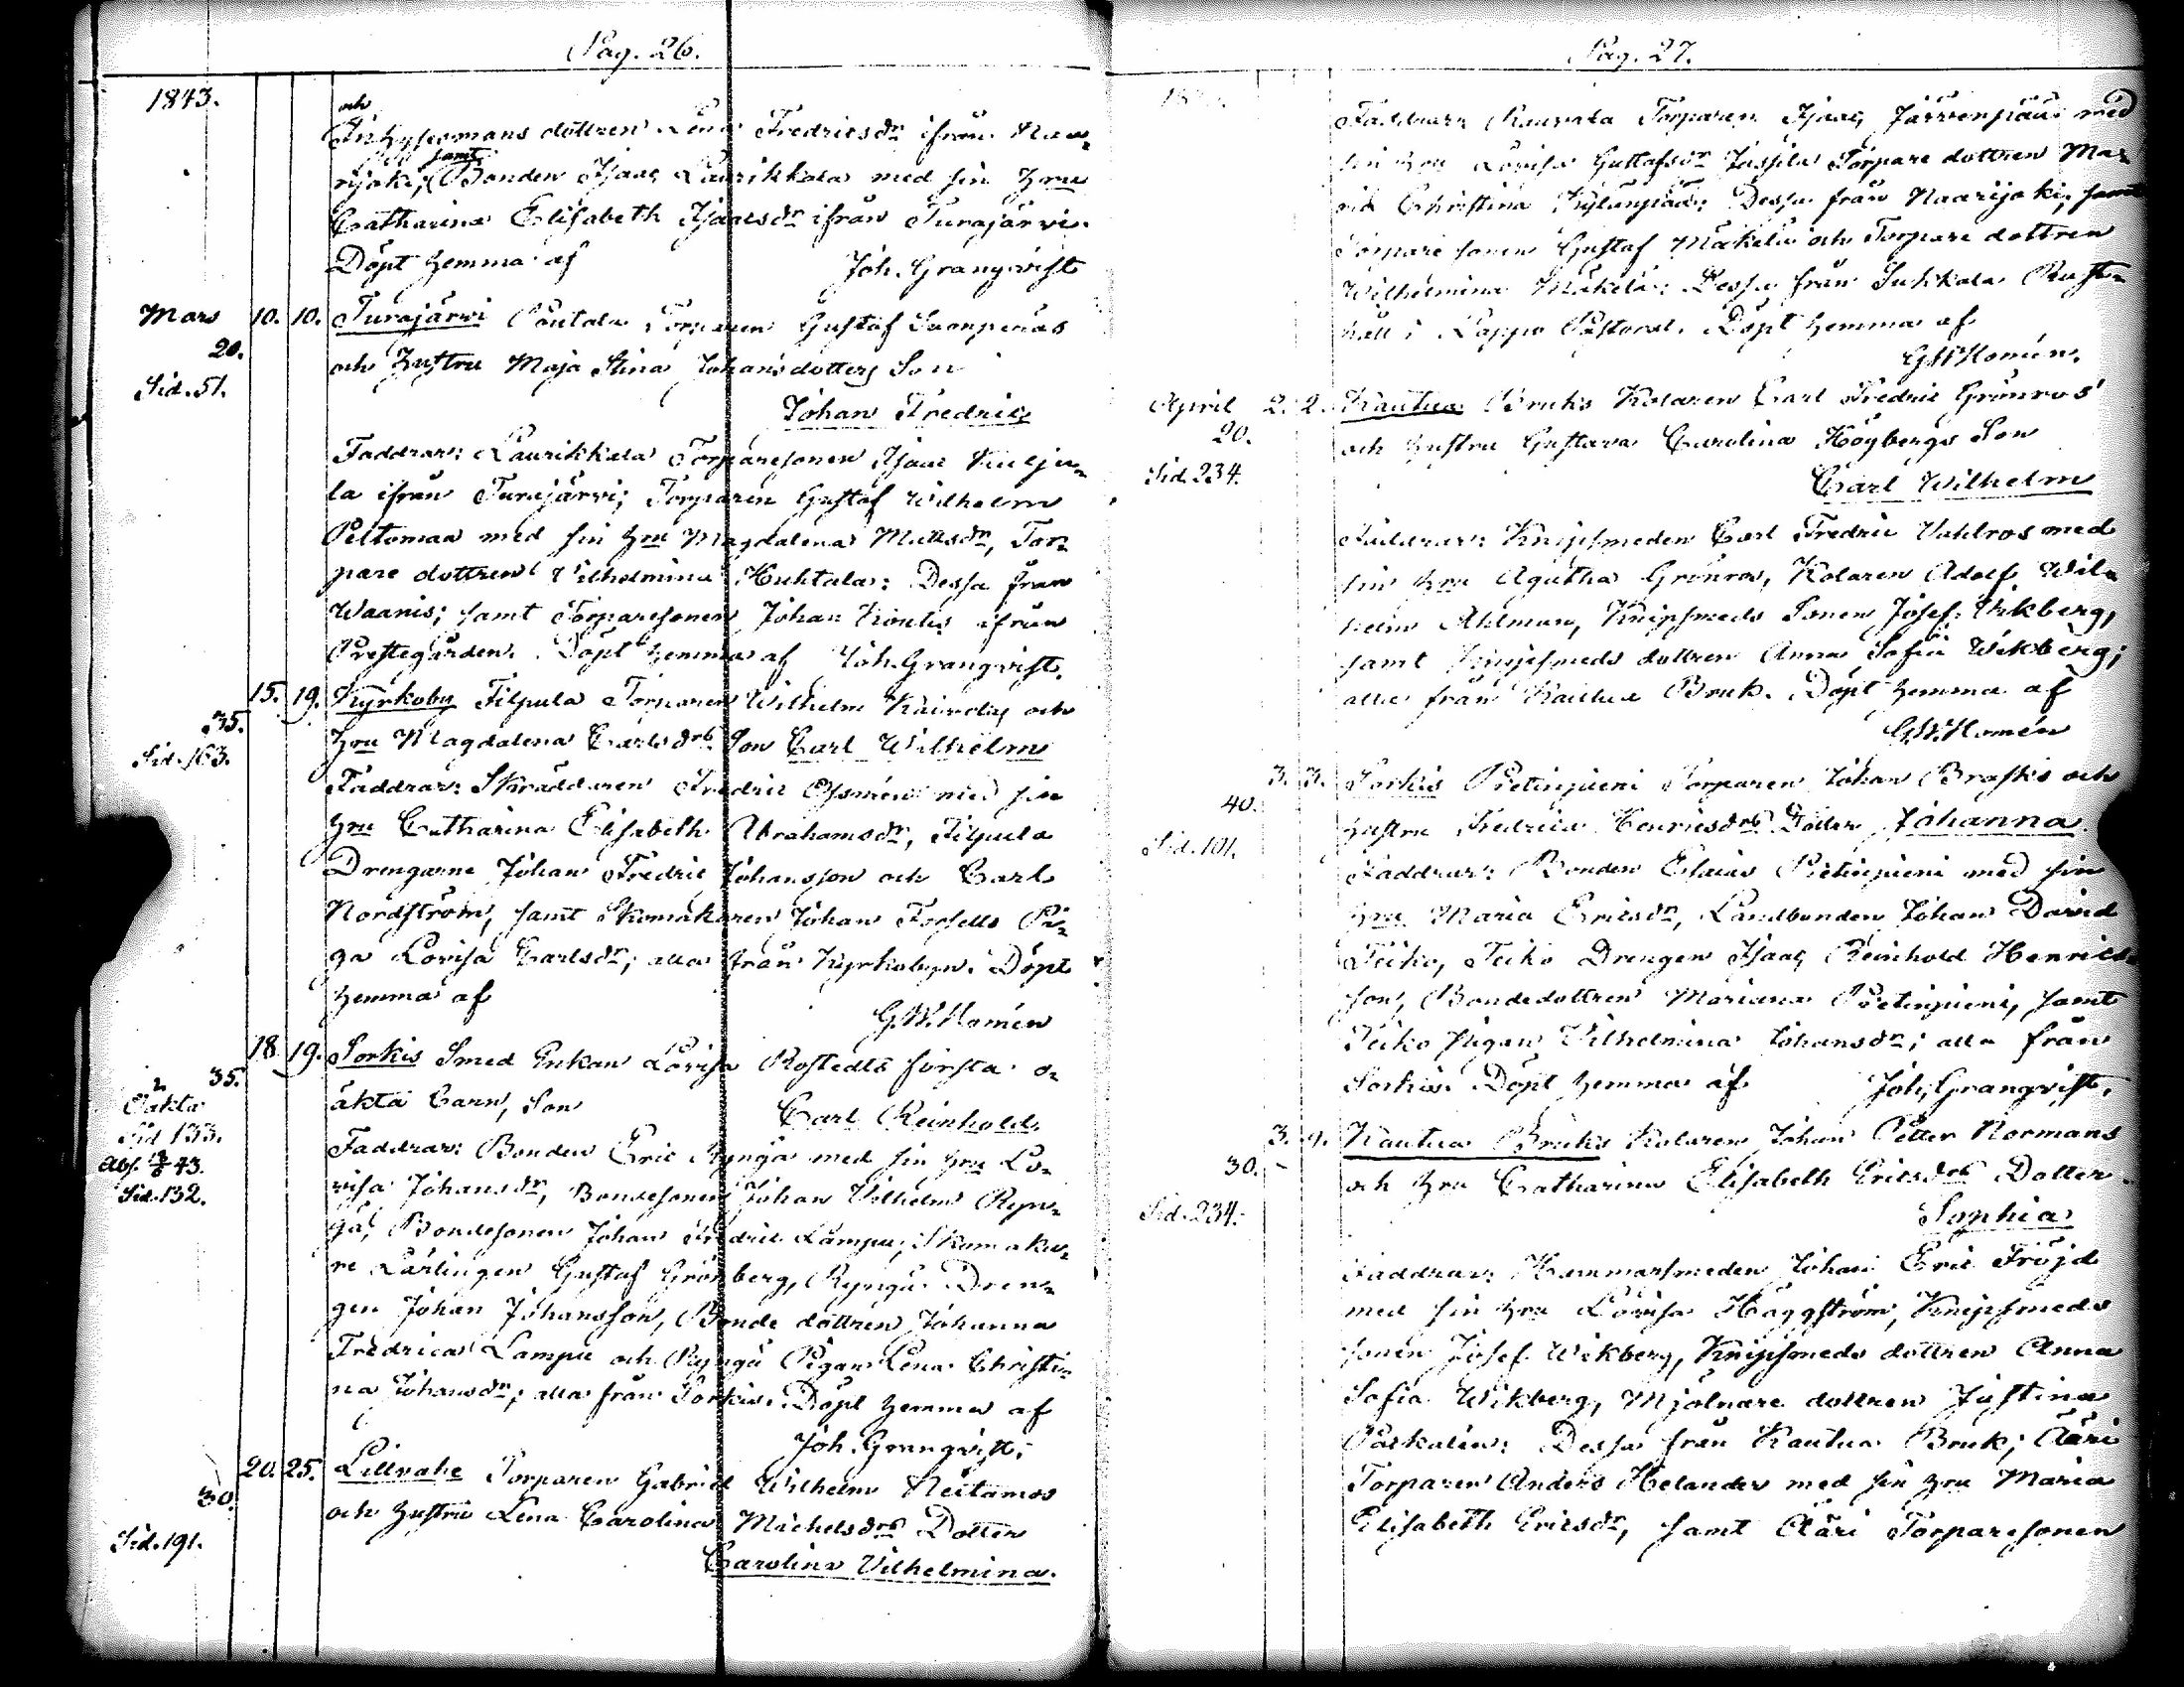 Pag. 26.
1843.
och
Inhysesmans dottren Lena Fredricsdr ifrån Naa-
rijoki; samt Bonden Isaac Laurikkala med sin Hru
Catharina Elisabeth Isaacsdr ifrån Turajärvi.
Döpt hemma af Joh. Granqvist
Mars 10. 10. Turajärvi Torparen Gustaf Suonpenäs
20.
och Hustru Maja Stina Johansdotters Son
Sid. 51.
Johan Fredric
Faddrar: Laurikkala Torparesonen Isaac
la ifrån Turajärvi; Torparen Gustaf Wilhelm
Peltomaa med sin Hru Magdalena Mattsdr, Tor-
pare dottren Vilhelmina Huhtala: Dessa från
Waanis; samt Torparesonen Johan ifrån
Prestegården. Döpt hemma af Joh. Granqvist.
15. 19. Kyrkoby Filpula Torparen Wilhelm och
35.
Hru Magdalena Carlsdrs Son Carl Wilhelm
Sid. 163.
Faddrar: Skräddaren Fredric med sin
Hru Catharina Elisabeth Abrahamsdr, Filpula
Drengarne Johan Fredric Johansson och Carl
Nordström, samt Skomakaren Johan Forsells Pi-
ga Lovisa Carlsdr; alla från Kyrkobyn. Döpt
hemma af
G.W. Homén
18. 19. Sorkis Smed Enkan Lovisa Rostedts första o-
35.
äkta Barn, Son Carl Reinhold.
Oäkta
Sid 133.
Sid. 132.
Faddrar: Bonden Eric Ryngä med sin Hru Lo-
visa Johansdr, Bondesonen Johan Vilhelm Ryn-
gä, Bondesonen Johan Fredric Lampu; Skomaka-
re Lärlingen Gustaf Grönberg, Ryngä Dren-
gen Johan Johansson, Bonde dottren Johanna
Fredrica Lampu och Ryngä Pigan Lena Christi-
na Johansdr; alla från Sorkis. Döpt hemma af
Joh. Granqvist.
20. 25. Lellvahe Torparen Gabriel Wilhelm Neitamos
30.
och Hustru Lena Carolina Michelsdrs Dotter
Sid. 191.
Carolina Vilhelmina.
Pag. 27.
Faddrar: Torparen Isaac Järvenpää med
sin Hru Lovisa Gustafsdr Jussila Torpare dottren Ma-
ria Christina Kylänpää; Dessa från Naarijoki, samt
Torpare sonen Gustaf Mäkelä och Torpare dottren
Wilhelmina Mäkelä: Dessa från Sukkala Rust-
håll i Lappo Pastorat. Döpt hemma af
G.W. Homén.
April 2. 2. Kautua Bruks Kolaren Carl Fredric Grönros'
20.
och Hustru Gustava Carolina Högbergs Son
Sid. 234.
Carl Wilhelm
Faddrar: Knipsmeden Carl Fredric Vahlros med
sin Hru Agatha Grönros, Kolaren Adolf Wil-
helm Ahlman, Knipsmeds Sonen Josef Wikberg,
samt Knipsmeds dottren Anna Sofia Wikberg;
alla från Kautua Bruk. Döpt hemma af
G.W. Homén
3. 3. Sorkis Pietinpieni Torparen Johan Brasks och
40.
Hustru Fredrica Henricsdrs Dotter Johanna.
Sid. 101.
Faddrar: Bonden Esaias Pietinpieni med sin
Hru Maria Ericsdr, Landbonden Johan David
Teiko, Teiko Drengen Isaac Reinhold Henrics-
son, Bondedottren Mariana Pietinpieni, samt
Teiko Pigan Vilhelmina Johansdr; alla från
Sorkis. Döpt hemma af Joh. Granqvist.
3. 9. Kautua Bruks Kolaren Johan Petter Normans
30.
och Hru Catharina Elisabeth Ericsdrs Dotter
Sid. 234.
Sophia
Faddrar: Hammarsmeden Johan Eric Fröjd
med sin Hru Lovisa Häggström, Knipsmeds
sonen Josef Wikberg, Knipsmeds dottren Anna
Sofia Wikberg, Mjölnare dottren Justina
Dessa från Kautua Bruk; Ääri
Torparen Anders Helander med sin Hru Maria
Elisabeth Ericsdr, samt Ääri Torparesonen